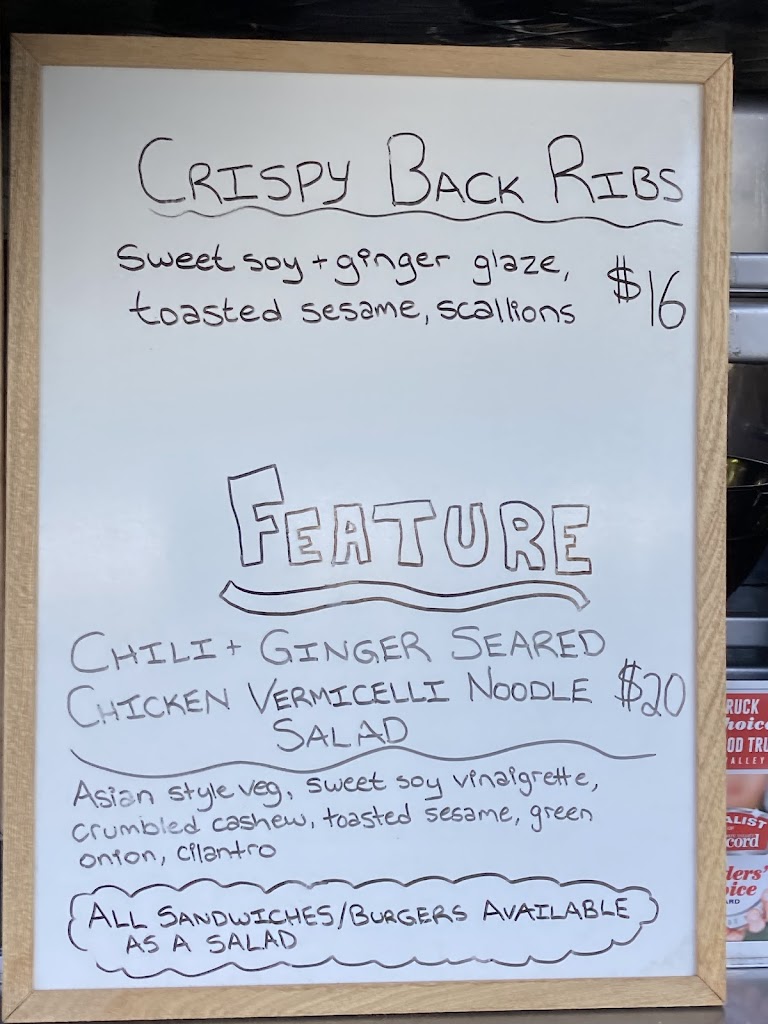 CRISPY BACK RIBS
Sweet soy + ginger glaze,
toasted sesame, scallions
$16
FEATURE
CHILI + GINGER SEARED
CHICKEN VERMICELLI NOODLE
SALAD
$20
Asian style veg, sweet soy vinaigrette,
crumbled cashew, toasted sesame, green
onion, cilantro
ALL SANDWICHES/BURGERS AVAILABLE
AS A SALAD
RUCK
hoice
OD TRU
ALLEY
ALIST
cord
ders'
oice
ARD